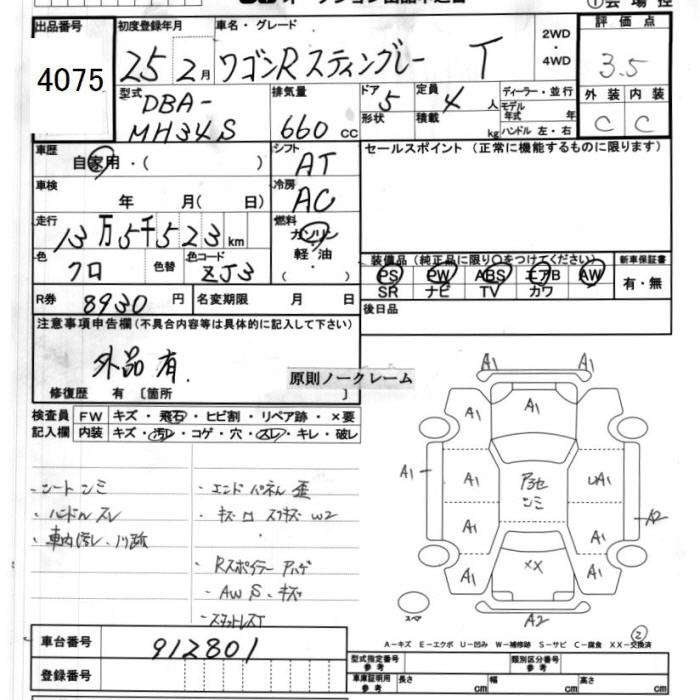 出品番号 初度登録年月 車名・グレード 2WD・4WD 評価点
4075 25 2月 ワゴンR スティングレー T 3.5
型式 排気量 ドア 定員 人 ディーラー・並行
DBA- 5 4 モデル年式 年 外装 内装
MH34S 660 cc 形状 積載 kg ハンドル 左・右 C C
車歴 シフト セールスポイント (正常に機能するものに限ります)
自家用・( ) AT
車検 冷房
年 月( 日) AC
走行 燃料
13万5千523km ガソリン・軽油
色 色替 色コード ( ・ )
クロ ZJ3
装備品 (純正品に限り○をつけてください) 新車保証書
PS PW ABS エアB AW 有・無
SR ナビ TV カワ
R券 8930円 名変期限 月 日 後日品
注意事項申告欄 (不具合内容等は具体的に記入して下さい)
外品有.
原則ノークレーム
修復歴 有 〔箇所 〕
検査員 FW キズ・飛石・ヒビ割・リペア跡・×要
記入欄 内装 キズ・汚レ・コゲ・穴・スレ・キレ・破レ
・シートシミ
・ハンドルスレ
・車内汚レ、
・エンドパネル歪
・W2
・Rスポイラー ハゲ
・AW S・キズ
・スタットレスT
A1 A1
A1 A1 A1
A1 A1 UA1
A1 A1 A2
A1 XX A1
スペア A2
②
A-キズ E-エクボ U-凹み W-補修跡 S-サビ C-腐食 XX-交換済
車台番号 912801
登録番号
型式指定番号 参考 類別区分番号 参考
車庫証明用 参考 長さ cm 幅 cm 高さ cm